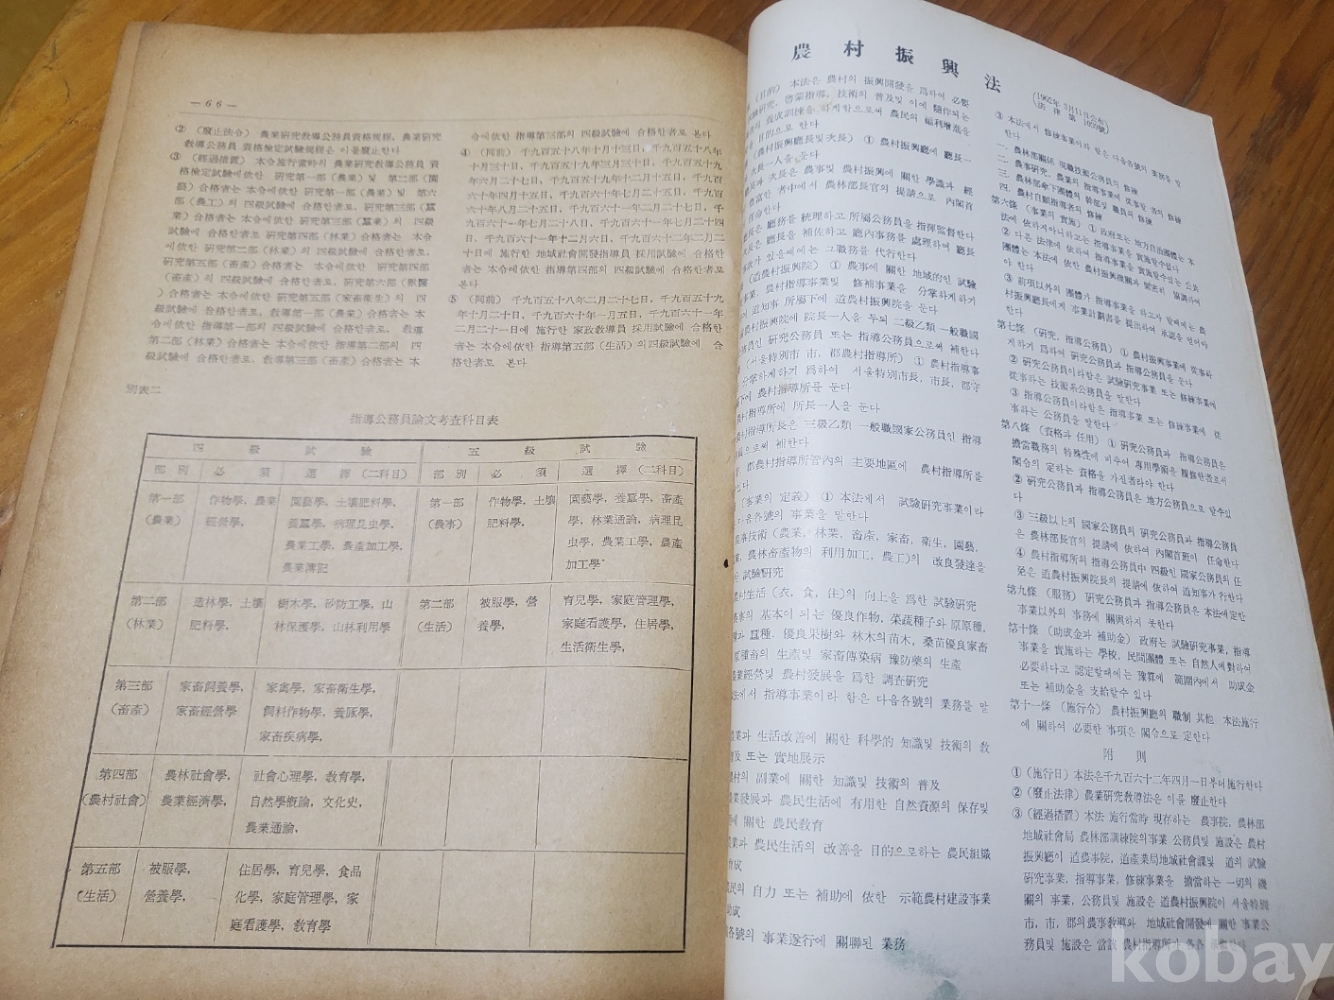 — 66 —
② (廢止法令) 農業硏究敎導公務員資格規程, 農業硏究
敎導公務員 資格檢定試驗規程은 이를廢止한다
③ (經過措置) 本令施行當時의 農業硏究敎導公務員 資
格檢定試驗에依한 硏究第一部(農業) 및 第二部(園
藝) 合格者는 本令에依한 硏究第一部(農業) 및 第六
部(農工)의 四級試驗에 合格한者로, 硏究第三部(蠶
業) 合格者는 本令에依한 硏究第三部(蠶業)의 四級
試驗에 合格한者로 硏究第四部(林業)合格者는 本令
에依한 硏究第二部(林業)의 四級試驗에 合格한者로,
硏究第五部(畜產)合格者는 本令에依한 硏究第四部
(畜產)의 四級試驗에 合格한者로, 硏究第六部(獸醫
)合格者는 本令에依한 硏究第五部(家畜衛生)의 四
級試驗에 合格한者로, 敎導第一部(農業) 合格者는 本
令에依한 指導第一部의 四級試驗에 合格한者로, 敎導
第二部(林業)合格者는 本令에依한 指導第二部의 四
級試驗에 合格한者로, 敎導第三部(畜產)合格者는 本
令에依한 指導第三部의 四級試驗에 合格한者로 본다
④ (同前) 千九百五十八年十月十三日, 千九百五十八年
十月三十日, 千九百五十九年三月三十日, 千九百五十九
年六月二十七日, 千九百五十九年十二月十五日, 千九百
六十年四月十五日, 千九百六十年五月二十五日, 千九百
六十年八月二十五日, 千九百六十一年二月二十七日, 千
九百六十一年七月二十八日, 千九百六十一年七月二十四
日, 千九百六十一年十二月六日, 千九百六十二年二月二
十日에 施行한 地域社會開發指導員 採用試驗에 合格한
者는 本令에依한 指導第四部의 四級試驗에 合格한者로
본다
⑤ (同前) 千九百五十八年二月二十七日, 千九百五十九
年十月二十日, 千九百六十年一月五日, 千九百六十一年
二月二十一日에 施行한 家政敎導員 採用試驗에 合格한
者는 本令에依한 指導第五部(生活)의 四級試驗에 合
格한者로 본다
別表二
指導公務員論文考査科目表
四 級 試 驗
五 級 試 驗
部別 必 須 選 擇 (二科目) 部別 必 須 選 擇 (二科目)
第一部 作物學, 農業 園藝學, 土壤肥料學, 第一部 作物學, 土壤 園藝學, 養蠶學, 畜產
(農業) 經營學, 養蠶學, 病理昆虫學, (農事) 肥料學, 學, 林業通論, 病理昆
農業工學, 農產加工學, 虫學, 農業工學, 農產
農業簿記 加工學
第二部 造林學, 土壤 樹木學, 砂防工學, 山 第二部 被服學, 營 育兒學, 家庭管理學,
(林業) 肥料學, 林保護學, 山林利用學 (生活) 養學, 家庭看護學, 住居學,
生活衛生學,
第三部 家畜飼養學, 家禽學, 家畜衛生學,
(畜產) 家畜經營學 飼料作物學, 養豚學,
家畜疾病學,
第四部 農林社會學, 社會心理學, 敎育學,
(農村社會) 農業經濟學, 自然學槪論, 文化史,
農業通論,
第五部 被服學, 住居學, 育兒學, 食品
(生活) 營養學, 化學, 家庭管理學, 家
庭看護學, 敎育學
農 村 振 興 法
(1962年 3月11日公布
法 律 第 1039號)
(目的) 本法은 農村의 振興開發을 爲하여 必要
試驗硏究, 啓蒙指導, 技術의 普及및 이에 隨伴되는
의 養成訓練을 하게함으로써 農民의 福利增進을
을 目的으로 한다
(農村振興廳長및次長) ① 農村振興廳에 廳長一
次長一人을 둔다
長과 次長은 農事및 農村振興에 關한 學識과 經
豊富한 者中에서 農林部長官의 提請으로 內閣首
任命한다
長은 廳務를 統理하고 所屬公務員을 指揮監督한다
次長은 廳長을 補佐하고 廳內事務를 處理하며 廳長
故가 있을때에는 그職務를 代行한다
(道農村振興院) ① 農事에 關한 地域的인 試驗
事業, 農村指導事業및 修補事業을 分掌하게하기
여 道知事 所屬下에 道農村振興院을 둔다
農村振興院에 院長一人을 두되 二級乙類 一般職國
務員인 硏究公務員 또는 指導公務員으로써 補한다
(서울特別市 市, 郡農村指導所) ① 農村指導事
分掌하게하기 爲하여 서울特別市長, 市長, 郡守
下에 農村指導所를 둔다
村指導所에 所長一人을 둔다
村指導所長은 三級乙類 一般職國家公務員인 指導
員으로써 補한다
郡農村指導所管內의 主要地區에 農村指導所를
있다
(事業의 定義) ① 本法에서 試驗硏究事業이라
다음各號의 事業을 말한다
事技術(農業, 林業, 畜產, 家畜, 衛生, 園藝,
業, 農林畜產物의 利用加工, 農工)의 改良發達을
한 試驗硏究
村生活(衣, 食, 住)의 向上을 爲한 試驗硏究
事의 基本이 되는 優良作物, 菜蔬種子와 原原種,
種과 蠶種, 優良果樹와 林木의苗木, 桑苗優良家畜
種畜의 生產및 家畜傳染病 豫防藥의 生產
農業經營및 農村發展을 爲한 調査硏究
法에서 指導事業이라 함은 다음各號의 業務를 말
農業과 生活改善에 關한 科學的 知識및 技術의 敎
普及 또는 實地展示
農村의 副業에 關한 知識및 技術의 普及
農業發展과 農民生活에 有用한 自然資源의 保存및
에 關한 農民敎育
農業과 農民生活의 改善을 目的으로하는 農民組織
育成
農民의 自力 또는 補助에 依한 示範農村建設事業
助成
各號의 事業遂行에 關聯된 業務
③ 本法에서 修練事業이라 함은 다음各號의 業務를 말
한다
一. 農林部關係 現職技術公務員의 修練
二. 農事硏究, 農業의 指導事業에 從事할 者의 修練
三. 農林部傘下團體의 幹部및 職員의 修練
四. 農村自願指導者의 修練
第六條 (事業의 實施) ① 政府또는 地方自治團體는 本
法에 依하지아니하고는 指導事業을 實施할수없다
② 다른 法律에 依하여 指導事業을 實施할수있는 公共
團體는 本法에 依한 農村振興機關과 緊密히 協調하여
야 한다
③ 前項以外의 團體가 指導事業을 하고자 할때에는 農
村振興廳長에게 事業計劃書를 提出하여 承認을 얻어야
한다
第七條 (硏究, 指導公務員) ① 農村振興事業에 從事하
게하기 爲하여 硏究公務員과 指導公務員을 둔다
② 硏究公務員이라함은 試驗硏究事業 또는 修練事業에
從事하는 技術系公務員을 말한다
③ 指導公務員이라함은 指導事業 또는 修練事業에 從
事하는 公務員을 말한다
第八條 (資格과 任用) ① 硏究公務員과 指導公務員은
擔當職務의 特殊性에 비추어 專用學術을 履修한者로서
閣令의 定하는 資格을 가진者라야 한다
② 硏究公務員과 指導公務員은 地方公務員으로 할수있
다
③ 三級以上의 國家公務員의 硏究公務員과 指導公務員
은 農林部長官의 提請에 依하여 內閣首班이 任命한다
④ 農村指導所의 指導公務員中 四級인 國家公務員의 任
免은 道農村振興院長의 提請에 依하여 道知事가 行한다
第九條 (服務) 硏究公務員과 指導公務員은 本法에定한
事業以外의 事務에 關與하지 못한다
第十條 (助成金과 補助金) 政府는 試驗硏究事業, 指導
事業을 實施하는 學校, 民間團體 또는 自然人에對하여
必要하다고 認定할때에는 豫算의 範圍內에서 助成金
또는 補助金을 支給할수 있다
第十一條 (施行令) 農村振興廳의 職制 其他 本法施行
에 關하여 必要한 事項은 閣令으로 定한다
附 則
① (施行日) 本法은千九百六十二年四月一日부터施行한다
② (廢止法律) 農業硏究敎導法은 이를 廢止한다
③ (經過措置) 本法 施行當時 現存하는 農事院, 農林部
地域社會局 農林部訓練院의事業 公務員및 施設은 農村
振興廳이 道農事院, 道產業局地域社會課및 道의 試驗
硏究事業, 指導事業, 修練事業을 擔當하는 一切의 機
關의 事業, 公務員및 施設은 道農村振興院이 서울特別
市, 市, 郡의農事敎導와 地域社會開發에 關한 事業公
務員및 施設은 當該 農村指導所가 各各
kobay